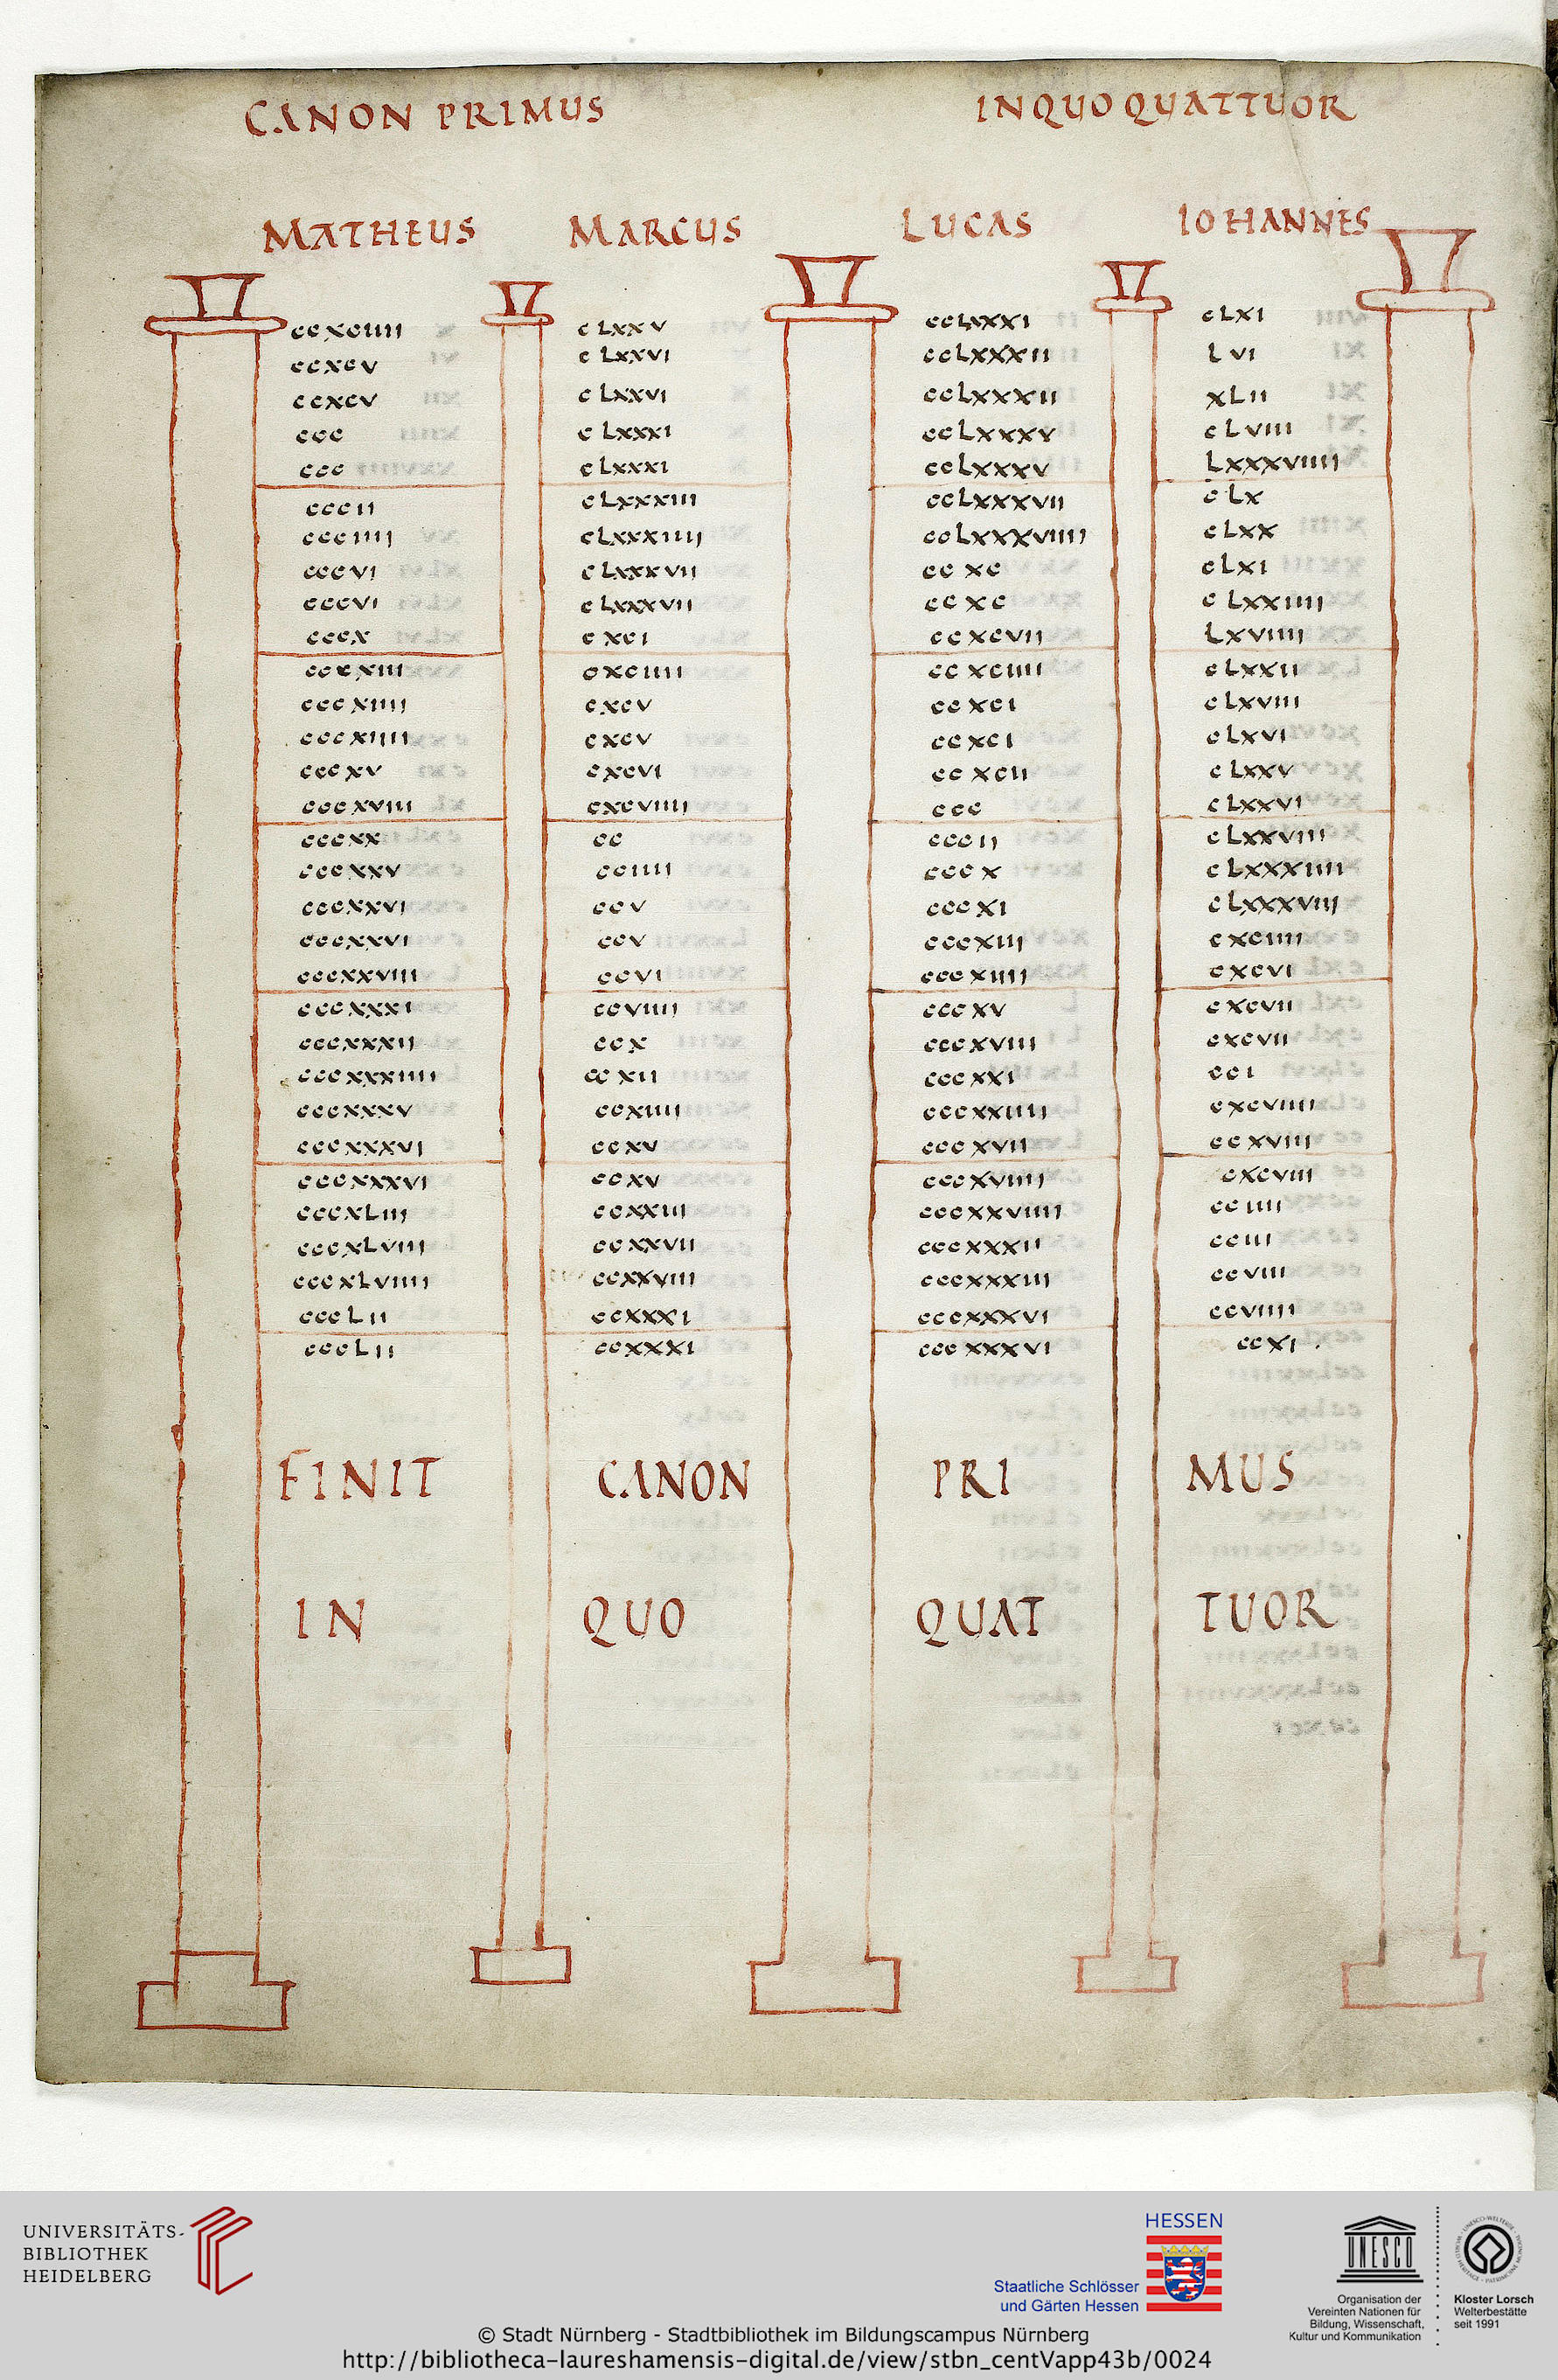 CANON PRIMUS INQUO QUATTUOR
MATHEUS MARCUS LUCAS IOHANNES
ccxciiii clxxv cclxxxi clxi
ccxcv clxxvi cclxxxii lvi
ccxcv clxxvi cclxxxii xlii
ccc clxxxi cclxxxv clviii
ccc clxxxi cclxxxv lxxxviiii
cccii clxxxiii cclxxxvii clx
ccciiii clxxxiiii cclxxxviiii clxx
cccvi clxxxvii ccxc clxi
cccvi clxxxvii ccxc clxxiiii
cccx cxci ccxcvii lxviiii
cccxiii cxciiii ccxciiii clxxii
cccxiiii cxcv ccxci clxviii
cccxiiii cxcv ccxci clxvi
cccxv cxcvi ccxcii clxxv
cccxviii cxcviiii ccc clxxvi
cccxx cc cccii clxxviii
cccxxv cciiii cccx clxxxiiii
cccxxvi ccv cccxi clxxxviii
cccxxvi ccv cccxiii cxciiii
cccxxviii ccvi cccxiiii cxcvi
cccxxxi ccviiii cccxv cxcvii
cccxxxii ccx cccxviii cxcvii
cccxxxiiii ccxii cccxxi cci
cccxxxv ccxiiii cccxxiiii cxcviiii
cccxxxvi ccxv cccxvii ccxviii
cccxxxvi ccxv cccxviiii cxcviii
cccxliii ccxxiii cccxxviiii cciiii
cccxlviii ccxxvii cccxxxii cciii
cccxlviiii ccxxviii cccxxxiii ccviii
ccclii ccxxxi cccxxxvi ccviiii
ccclii ccxxxi cccxxxvi ccxi.
FINIT CANON PRI MUS
IN QUO QUAT TUOR
UNIVERSITÄTS-
BIBLIOTHEK
HEIDELBERG
HESSEN
Staatliche Schlösser
und Gärten Hessen
UNESCO
Organisation der
Vereinten Nationen für
Bildung, Wissenschaft,
Kultur und Kommunikation
Kloster Lorsch
Welterbestätte
seit 1991
© Stadt Nürnberg - Stadtbibliothek im Bildungscampus Nürnberg
http://bibliotheca-laureshamensis-digital.de/view/stbn_centVapp43b/0024